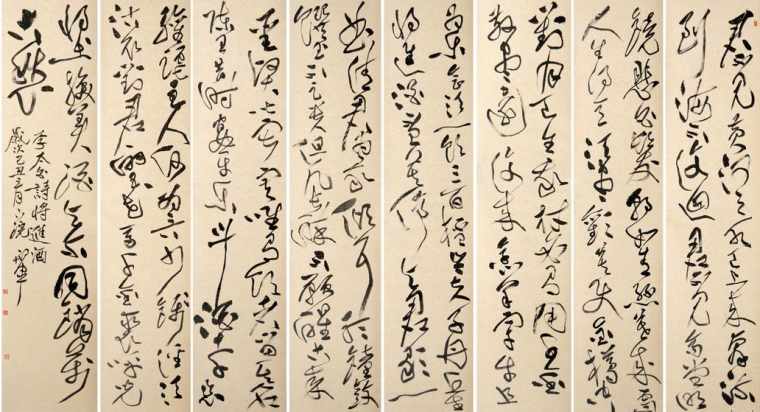 君不見黃河之水天上來奔流
到海不復迴君不見高堂明
鏡悲白髮朝如青絲暮成雪
人生得意須盡歡莫使金樽空
對月天生我材必有用千金
散盡還復來烹羊宰牛且
為樂會須一飲三百杯岑夫子丹丘生
將進酒君莫停與君歌一
曲請君為我傾耳聽鐘鼓
饌玉不足貴但願長醉不願醒古來
聖賢皆寂寞惟有飲者留其名
陳王昔時宴平樂斗酒十千恣
歡謔主人何為言少錢徑須
沽取對君酌五花馬千金裘呼兒
將出換美酒與爾同銷萬
古愁
李太白詩將進酒
歲次己丑三月